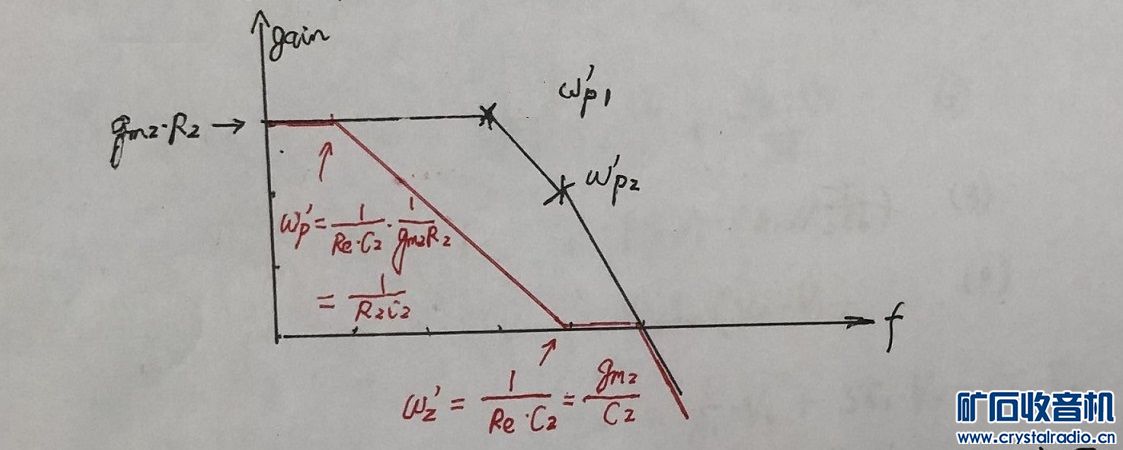 gain
gm2·R2 →
ω'p1
ω'p2
ω'p = 1/(Re·C2) · 1/(gm2R2)
= 1/(R2C2)
f
ω'z = 1/(Re·C2) = gm2/C2
矿石收音机
www.crystalradio.cn